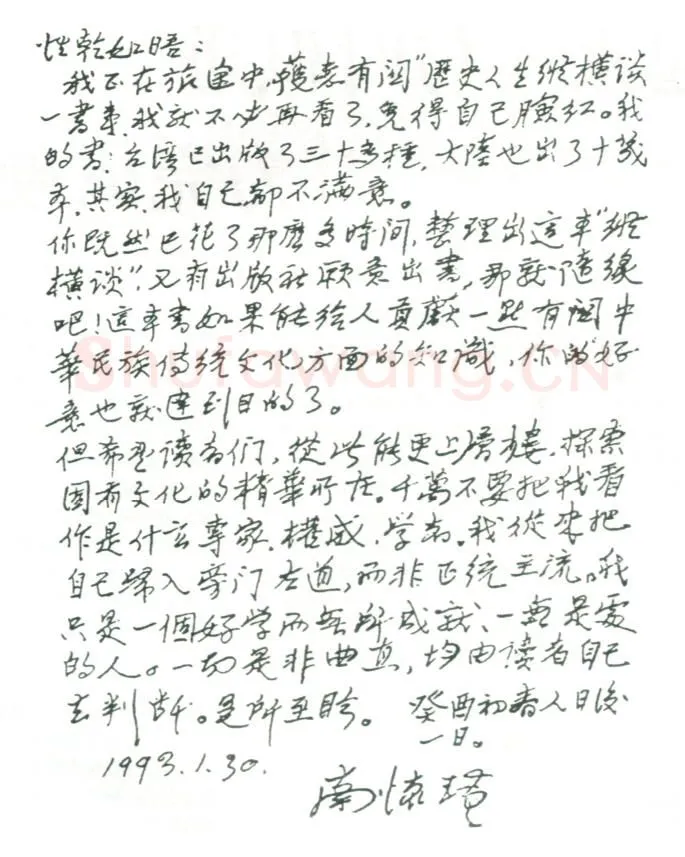 性乾如晤：
我正在旅途中，獲悉有関"歷史人生縱橫谈
一書事，我就不必再看了，免得自己臉红。我
的書，台灣已出版了三十多種，大陸也出了十幾
本，其实，我自己都不满意。
你既然已花了那麽多时间，整理出這本"縱
橫談"，又有出版社願意出書，那就隨緣
吧！這本書如果能给人貢獻一點有関中
華民族傳统文化方面的知識，你的好
意也就達到目的了。
但希望读者们，從此能更上層樓，探索
固有文化的精華所在。千萬不要把我看
作是什麽專家、權威、学者。我從来把
自己歸入旁门左道，而非正统主流。我
只是一個好学而無所成就、一無是處
的人。一切是非曲直，均由读者自己
去判断。是所至盼。 癸酉初春人日後
一日。
1993.1.30.
南懷瑾
Shufawang.CN